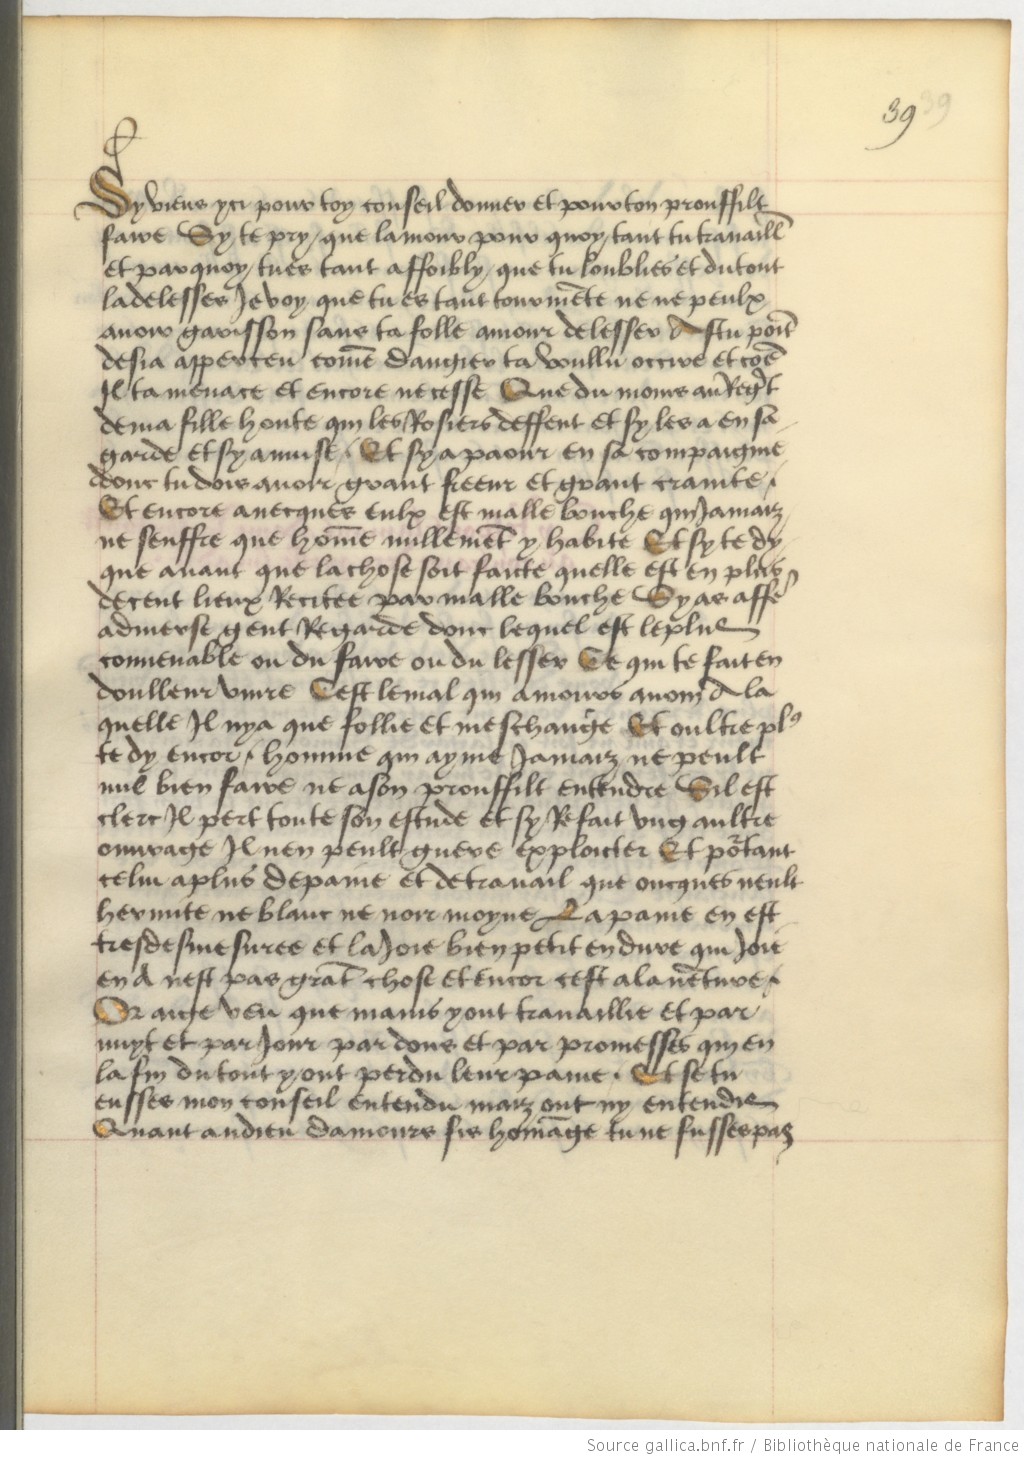 39 39
Sy viens yci pour toy conseil donner et pour ton prouffilt
faire Sy te pry que lamour pour quoy tant tu travaill
et par quoy tu es tant affoibly que tu loublies et du tout
la delesses Je voy que tu es tant tourmēte ne ne peulx
avoir garisson sans ta folle amour delesser As tu poīt
desia apperceu comē dangier ta voullu occire et coē
Il ta menace et encore ne cesse Que du moins au
de ma fille honte qui les Rosiers deffent et sy les a en sa
garde et sy amuse Et sy a paour en sa compaignie
donc tu dois avoir grant freeur et grant crainte
Et encore avecques eulx est malle bouche qui Jamaiz
ne seuffre que homē nullemēt y habite Et sy te dy
que avant que la chose soit faicte quelle est en plus
de cent lieux Recitee par malle bouche Sy as affē
adverse gent Regarde donc lequel est le plus
convenable ou du faire ou du lesser Ce qui te fait en
doulleur vivre Cest le mal qui amours a nom A la
quelle Il ny a que follie et meschance Et oultre plꝰ
te dy encor homme qui ayme Jamaiz ne peult
nul bien faire ne a son prouffilt entendre Sil est
clerc Il pert toute son estude et sy Refait vng aultre
ouvrage Il nen peult guere exploicter Et portant
celui a plus de paine et de travail que oncques neult
hermite ne blanc ne noir moyne La paine en est
tres desmesuree et la Joie bien petit en dure qui Joie
en A nest pas grāt chose et encor cest a lavēture
Or aige veu que mains y ont travaillie et par
nuyt et par Jour par dons et par promesses qui en
la fin du tout y ont perdu leur paine Et se tu
eusses mon conseil entendu maiz ont ny entendis
Quant au dieu damours fis homāge tu ne fusses pas
Source gallica.bnf.fr / Bibliothèque nationale de France